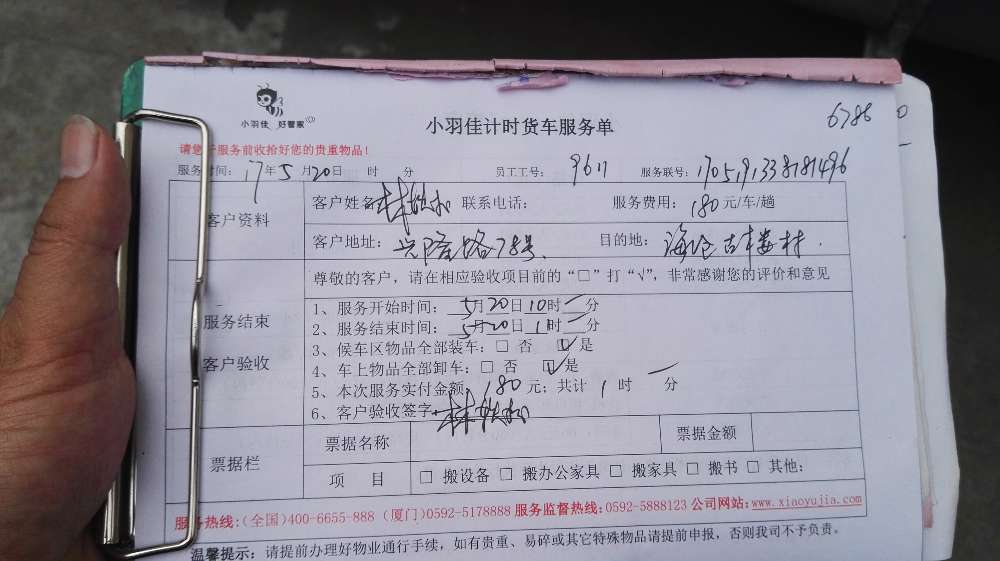 小羽佳 好管家
小羽佳计时货车服务单
6786
请您于服务前收拾好您的贵重物品！
服务时间：17年5月20日 时 分 员工工号：9611 服务联号：
客户资料
客户姓名 联系电话： 服务费用：180元/车/趟
客户地址：兴隆路78号 目的地：海沧古楼村.
尊敬的客户，请在相应验收项目前的“□”打“√”，非常感谢您的评价和意见
服务结束
客户验收
1、服务开始时间：5月20日10时 分
2、服务结束时间：5月20日1时 分
3、候车区物品全部装车：□ 否 ☑是
4、车上物品全部卸车：□ 否 ☑是
5、本次服务实付金额 180元；共计 1时 分
6、客户验收签字
票据栏
票据名称 票据金额
项 目 □ 搬设备 □ 搬办公家具 □ 搬家具 □ 搬书 □ 其他：
服务热线:(全国)400-6655-888 (厦门)0592-5178888 服务监督热线:0592-5888123 公司网站:www.xiaoyujia.com
温馨提示：请提前办理好物业通行手续，如有贵重、易碎或其它特殊物品请提前申报，否则我司不予负责。